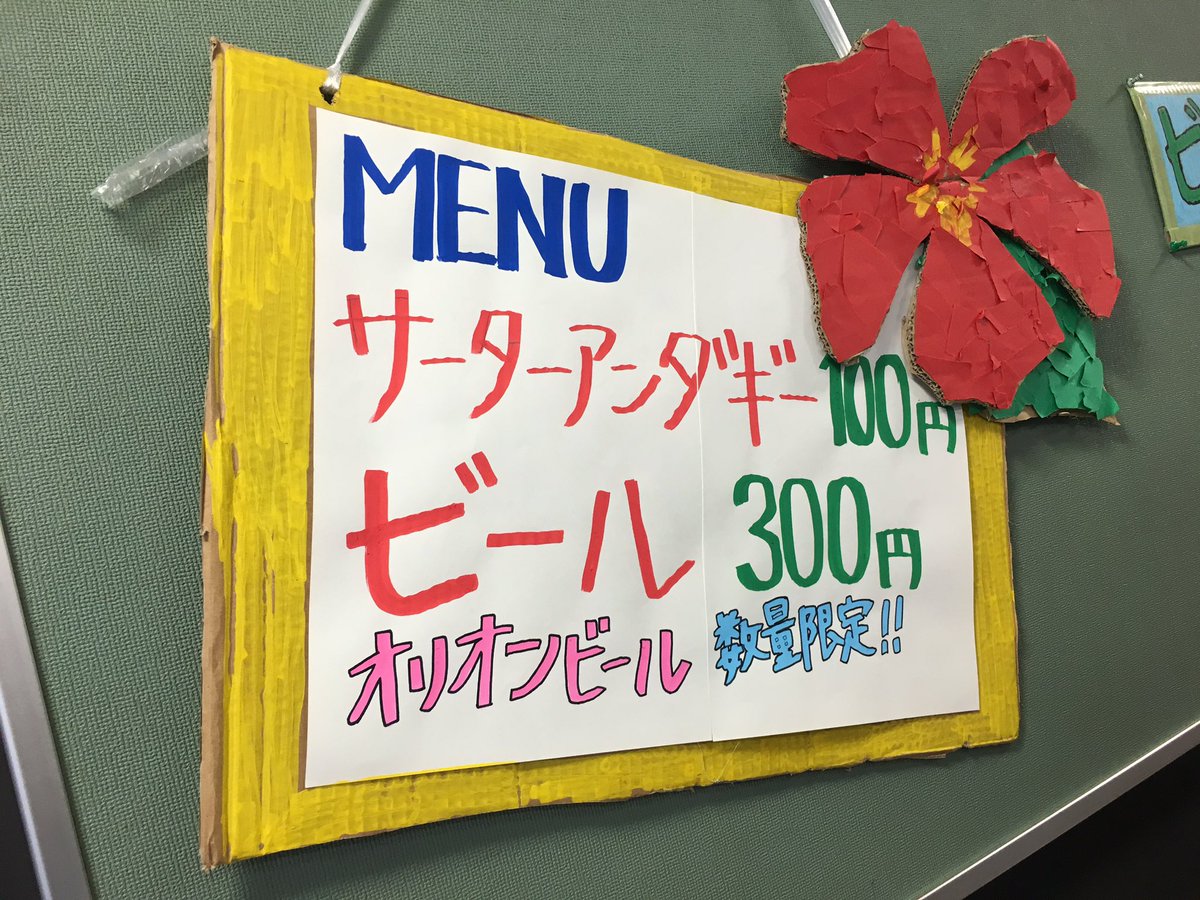 MENU
サーターアンダギー 100円
ビール 300円
オリオンビール 数量限定!!
ビ